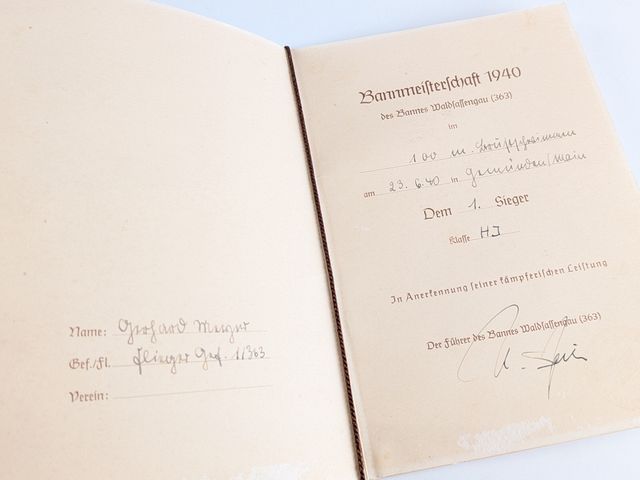 Name: Gerhard Meyer
Gef./Fl. Flieger Gef. 11/363
Verein:
Bannmeisterschaft 1940
des Bannes Waldsassengau (363)
im
100 m. Brustschwimmen
am 23.6.40 in Gemünden/Main
Dem 1. Sieger
Klasse HJ
In Anerkennung seiner kämpferischen Leistung
Der Führer des Bannes Waldsassengau (363)